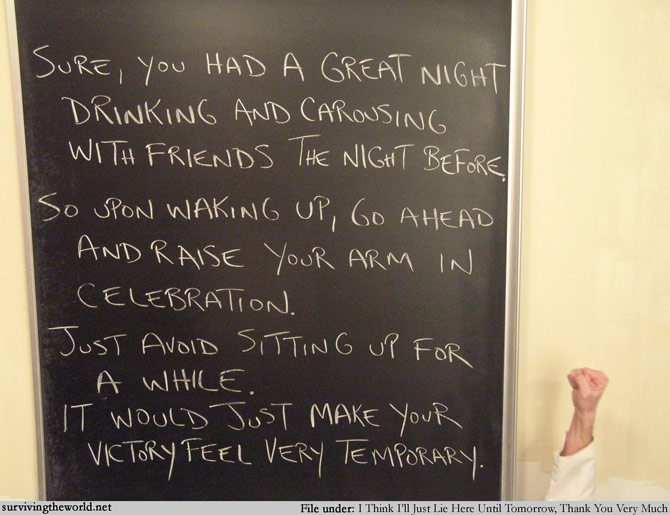 SURE, YOU HAD A GREAT NIGHT
DRINKING AND CAROUSING
WITH FRIENDS THE NIGHT BEFORE.
SO UPON WAKING UP, GO AHEAD
AND RAISE YOUR ARM IN
CELEBRATION.
JUST AVOID SITTING UP FOR
A WHILE.
IT WOULD JUST MAKE YOUR
VICTORY FEEL VERY TEMPORARY.
survivingtheworld.net
File under: I Think I'll Just Lie Here Until Tomorrow, Thank You Very Much